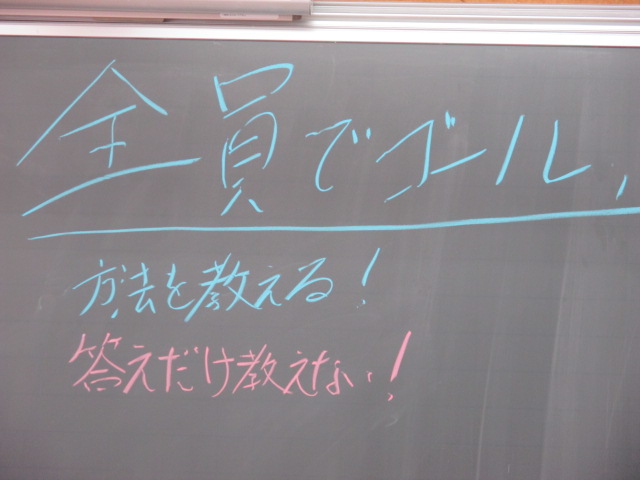 全員でゴール,
方法を教える!
答えだけ教えない!